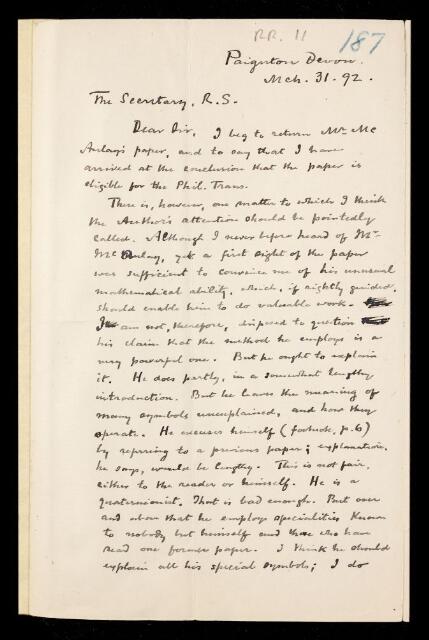 RR. 11
187
Paignton Devon.
Mch. 31. 92.
The Secretary, R.S.
Dear Sir, I beg to return Mr. Mc
Aulay's paper, and to say that I have
arrived at the conclusion that the paper is
eligible for the Phil. Trans.
There is, however, one matter to which I think
the Author's attention should be pointedly
called. Although I never before heard of Mr.
McAulay, yet a first sight of the paper
was sufficient to convince me of his unusual
mathematical ability, which, if rightly guided,
should enable him to do valuable work.
I am not, therefore, disposed to question
his claim that the method he employs is a
very powerful one. But he ought to explain
it. He does partly, in a somewhat lengthy
introduction. But he leaves the meaning of
many symbols unexplained, and how they
operate. He excuses himself (footnote, p.6)
by referring to a previous paper; explanation,
he says, would be lengthy. This is not fair,
either to the reader or himself. He is a
quaternionist. That is bad enough. But over
and above that he employs specialities known
to nobody but himself and those who have
read one former paper. I think he should
explain all his special symbols; I do